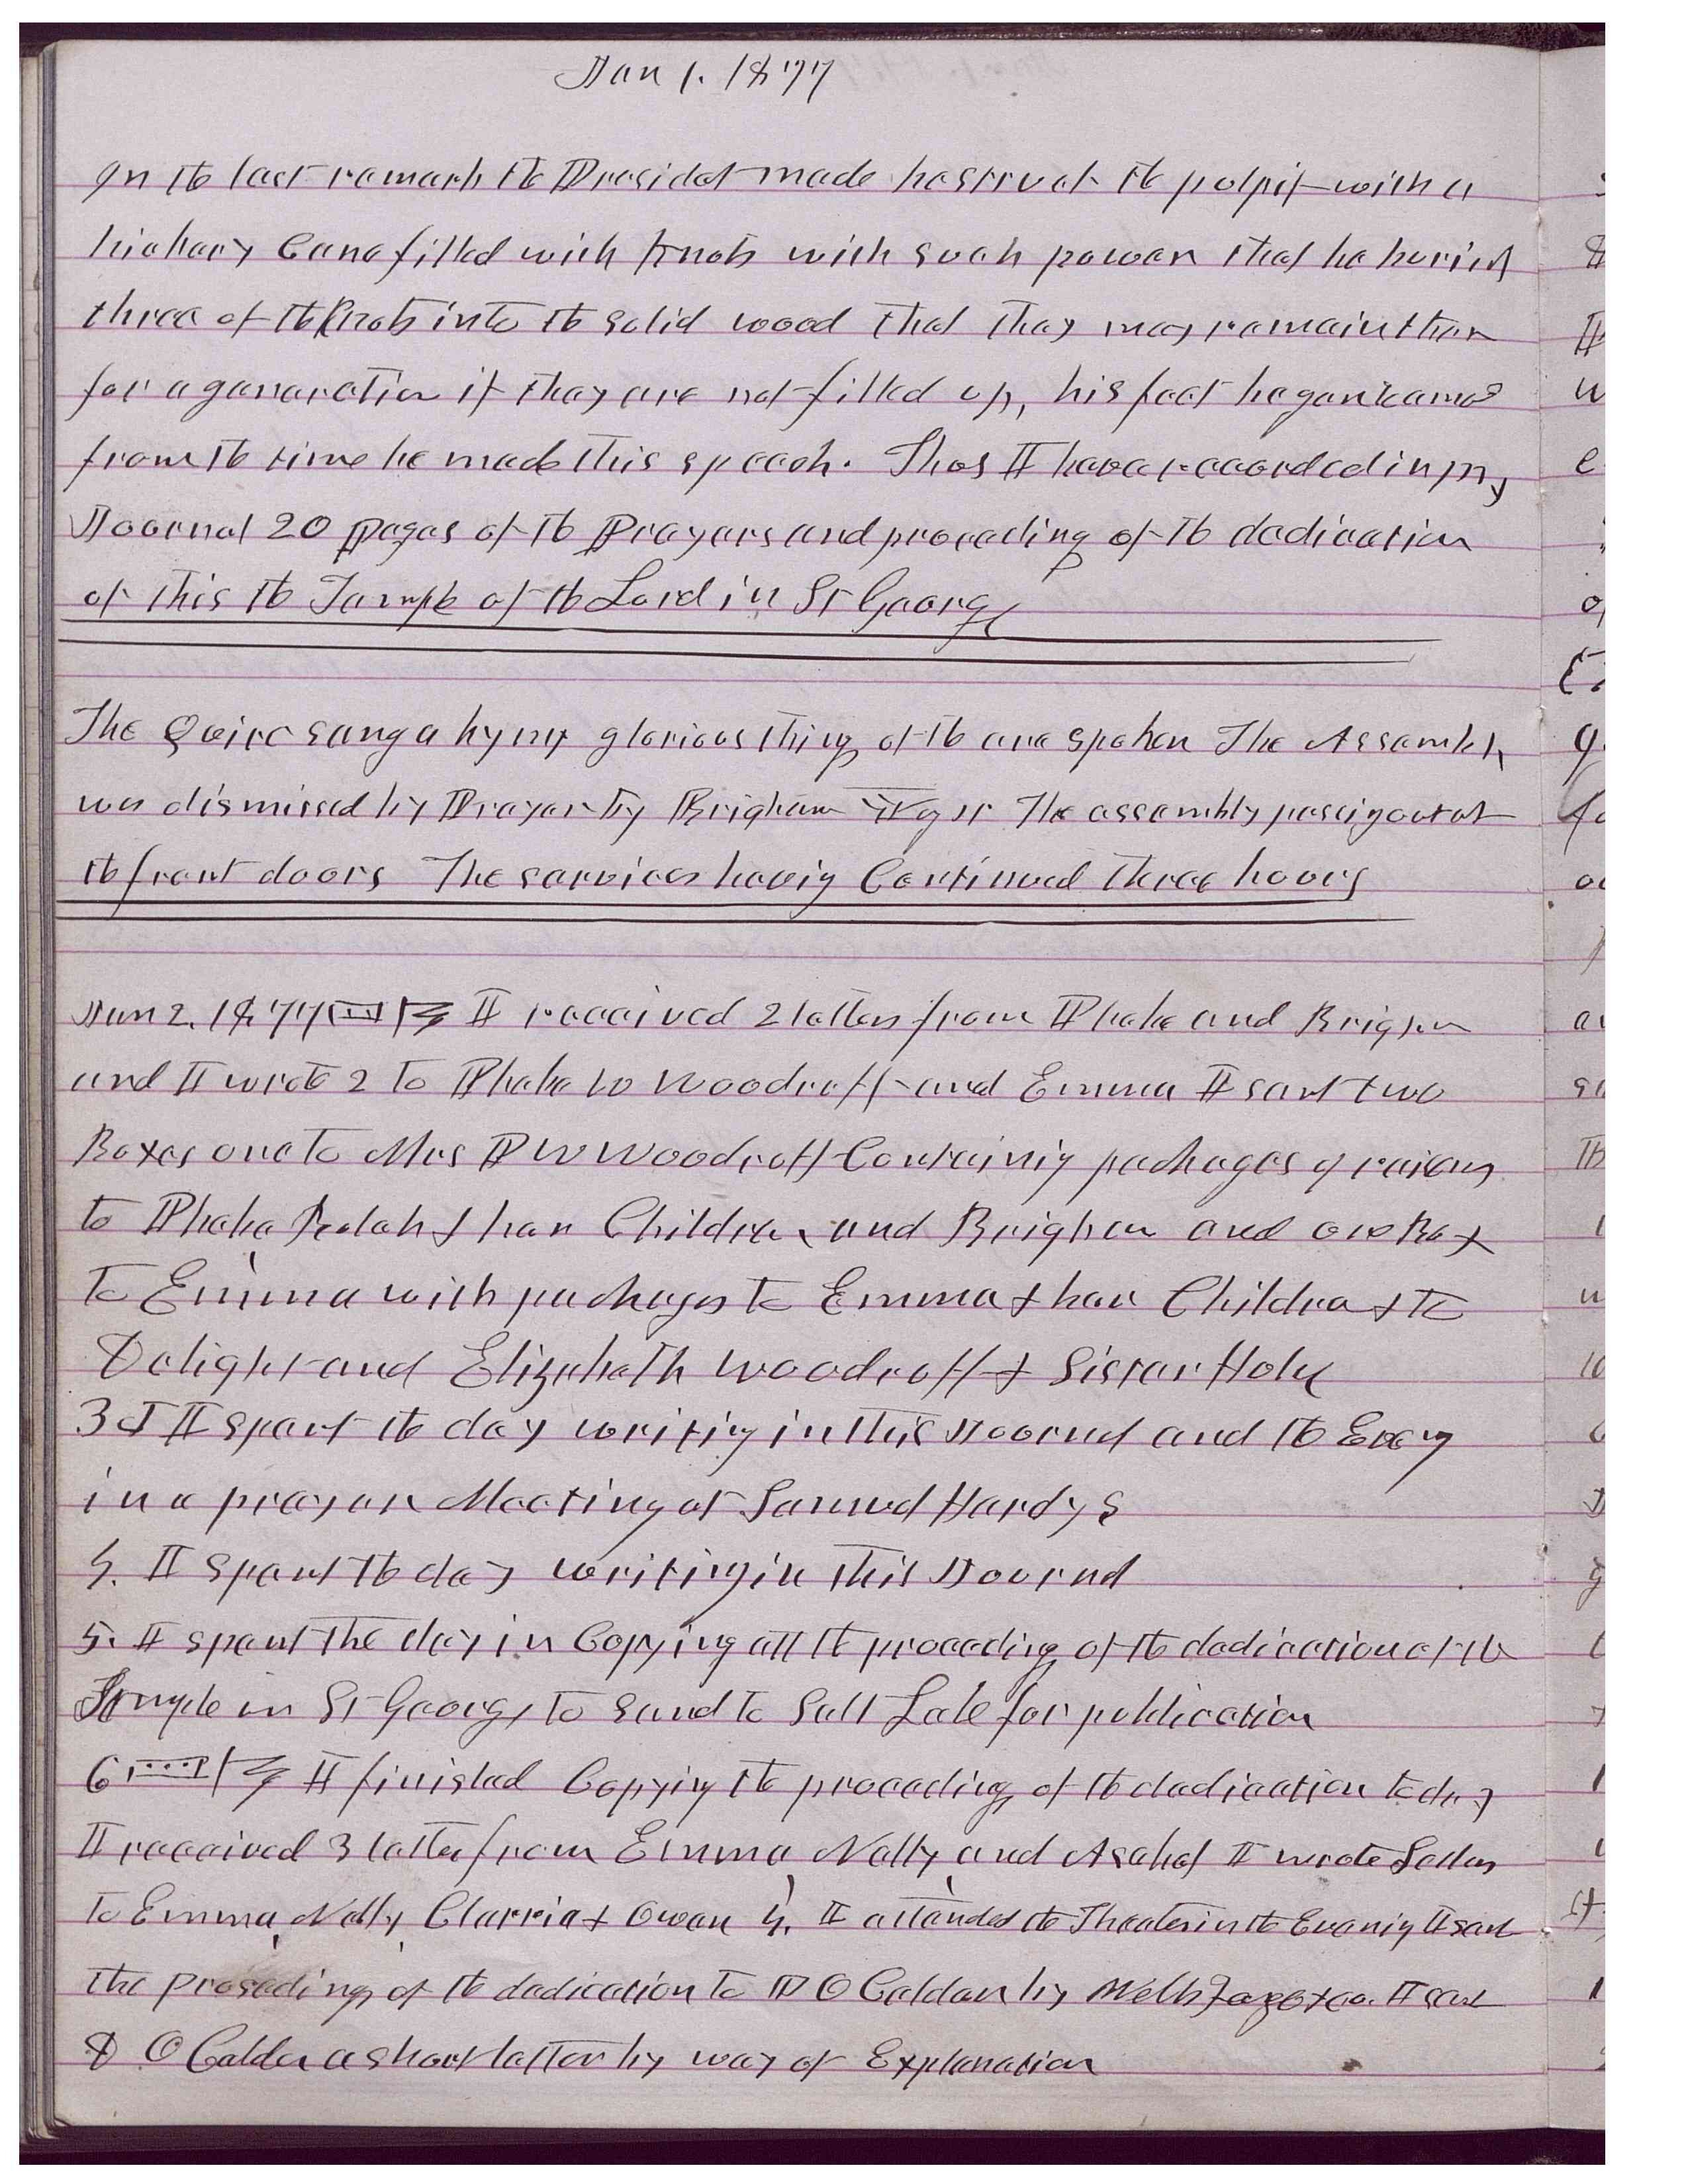 Jan 1. 1877
In the last remark the Presidet made he struct the pulpit with a
hickory Cane filled with knots with such power that he buried
three of the knots into the solid wood that they may remain ther
for a generation if they are not filled up, his feet began to amend
from the time he made this speech. Thus I have recorded in my
Journal 20 pages of the Prayers and proceding of the dedication
of this the Temple of the Lord in St George
The Quire sang a hymn glorious things of the are spoken The Assembly
was dismissed by Prayer by Brigham Yog Jr The assembly passig out at
the front doors The services havig Continued three hours
Jan 2. 1877 I received 2 letters from Phebe and Brigham
and I wrote 2 to Phebe W Woodruff and Emma I sent two
Boxes one to Mrs P W Woodruff Containig packages of raisins
to Phebe Bulah & her Children and Brigham and one Box
to Emma with packages to Emma & her Children & to
Delight and Elizabeth Woodruff & Sister Holy
3d I spent the day writig in this Journal and the Eveg
in a prayer Meeting at Samuel Hardys
4. I spent the day writing in this Journal
5. I spent the day in Copying all the proceding of the dedication of the
Temple in St George to send to Salt Lake for publication
6 I finished Copyig the proceding of the dedication to day
I received 3 letters from Emma Nelly and Asahel I wrote Letters
to Emma, Nelly, Clarria & Owen 4. I attended the Theater in the Evenig I sent
the proseding of the dedication to D O Calder by Wells Fargo & co. I sent
D O Calder a short letter by way of Explanation